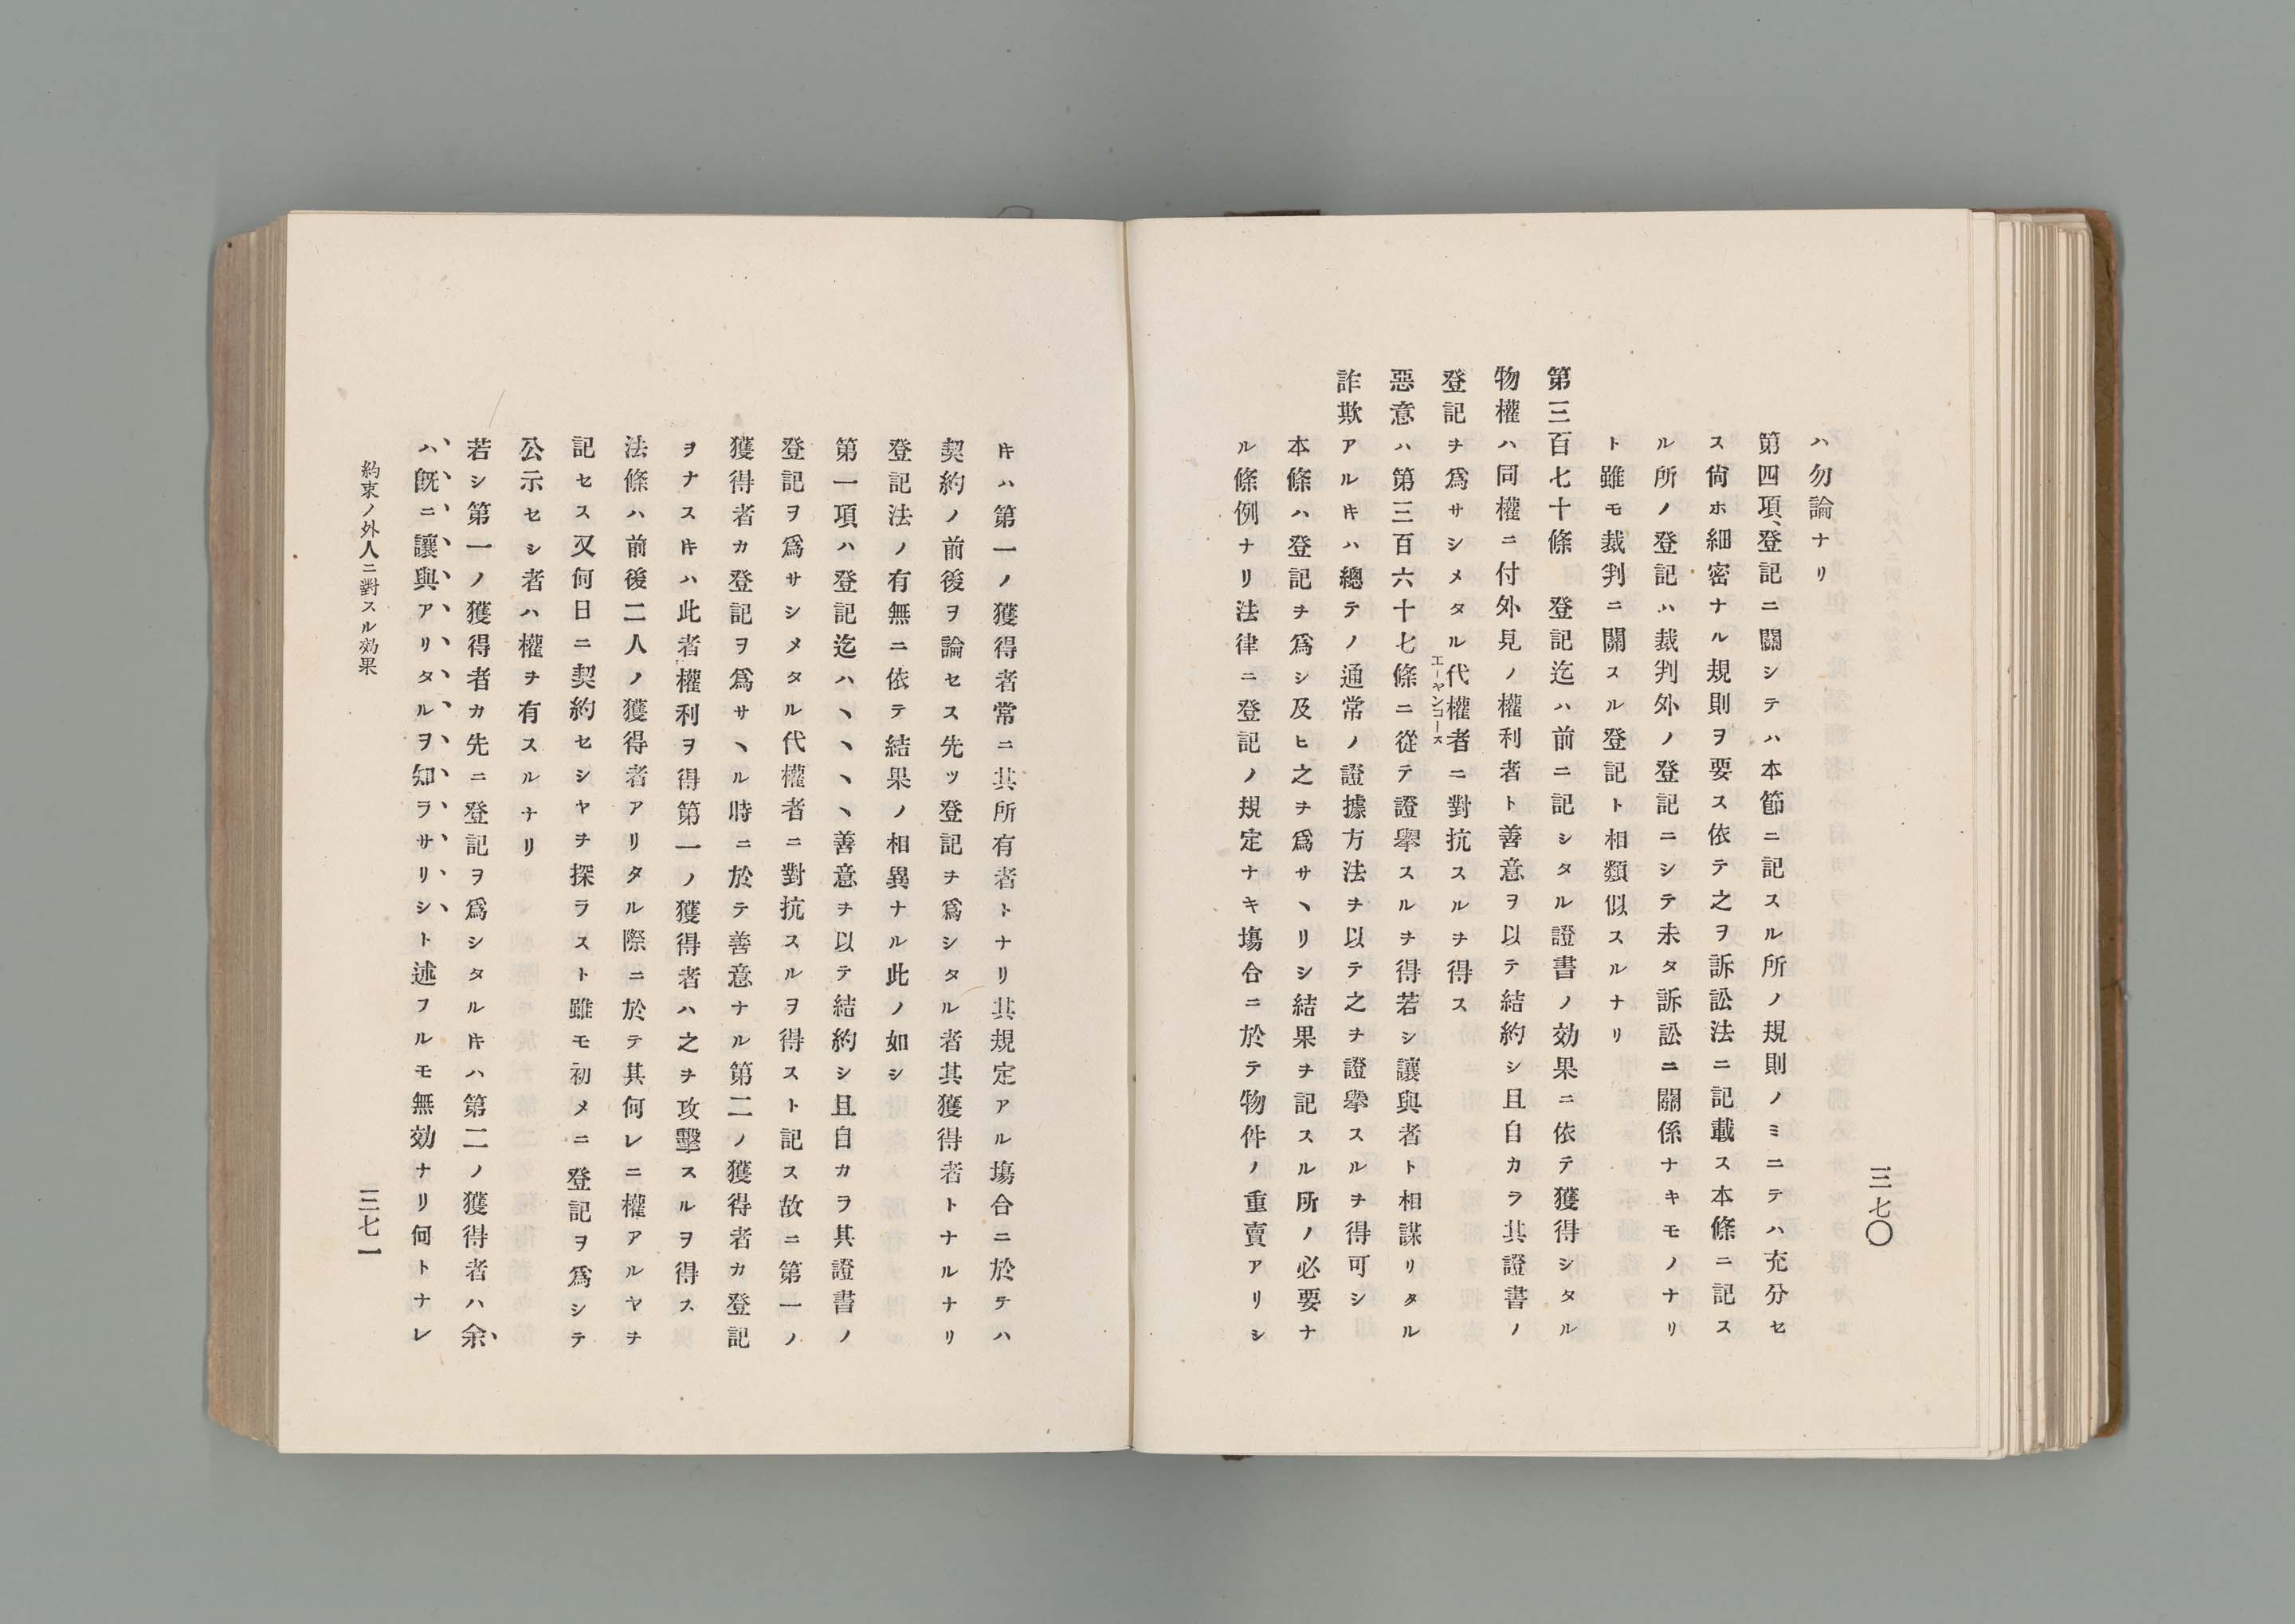 三七〇
ハ勿論ナリ
第四項、登記ニ關シテハ本節ニ記スル所ノ規則ノミニテハ充分セ
ス尙ホ細密ナル規則ヲ要ス依テ之ヲ訴訟法ニ記載ス本條ニ記ス
ル所ノ登記ハ裁判外ノ登記ニシテ未タ訴訟ニ關係ナキモノナリ
ト雖モ裁判ニ關スル登記ト相類似スルナリ
第三百七十條　登記迄ハ前ニ記シタル證書ノ効果ニ依テ獲得シタル
物權ハ同權ニ付外見ノ權利者ト善意ヲ以テ結約シ且自カラ其證書ノ
登記ヲ爲サシメタル代權者ニ對抗スルヲ得ス
エーヤンコース
惡意ハ第三百六十七條ニ從テ證擧スルヲ得若シ讓與者ト相謀リタル
詐欺アルキハ總テノ通常ノ證據方法ヲ以テ之ヲ證擧スルヲ得可シ
本條ハ登記ヲ爲シ及ヒ之ヲ爲サヽリシ結果ヲ記スル所ノ必要ナ
ル條例ナリ法律ニ登記ノ規定ナキ塲合ニ於テ物件ノ重賣アリシ
𪜈ハ第一ノ獲得者常ニ其所有者トナリ其規定アル塲合ニ於テハ
契約ノ前後ヲ論セス先ツ登記ヲ爲シタル者其獲得者トナルナリ
登記法ノ有無ニ依テ結果ノ相異ナル此ノ如シ
第一項ハ登記迄ハヽヽヽヽ善意ヲ以テ結約シ且自カラ其證書ノ
登記ヲ爲サシメタル代權者ニ對抗スルヲ得スト記ス故ニ第一ノ
獲得者カ登記ヲ爲サヽル時ニ於テ善意ナル第二ノ獲得者カ登記
ヲナス𪜈ハ此者權利ヲ得第一ノ獲得者ハ之ヲ攻擊スルヲ得ス
法條ハ前後二人ノ獲得者アリタル際ニ於テ其何レニ權アルヤヲ
記セス又何日ニ契約セシヤヲ探ラスト雖モ初メニ登記ヲ爲シテ
公示セシ者ハ權ヲ有スルナリ
若シ第一ノ獲得者カ先ニ登記ヲ爲シタル𪜈ハ第二ノ獲得者ハ余
ハ旣ニ讓與アリタルヲ知ラサリシト述フルモ無効ナリ何トナレ
約束ノ外人ニ對スル効果
三七一